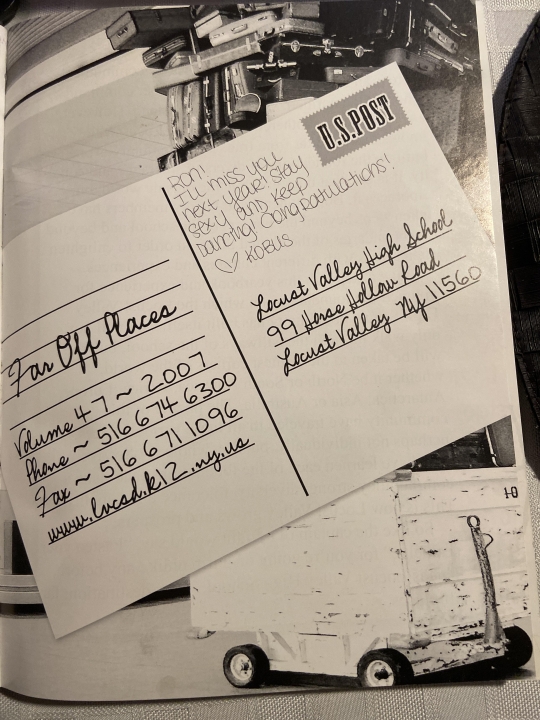 U.S. POST
Ron!
I'll miss you
next year! Stay
sexy and keep
dancing! Congratulations!
♡ KOBUS
Locust Valley High School
99 Horse Hollow Road
Locust Valley NY 11560
Far Off Places
Volume 47 ~ 2007
Phone ~ 516 674 6300
Fax ~ 516 671 1096
www.lvcsd.k12.ny.us
10